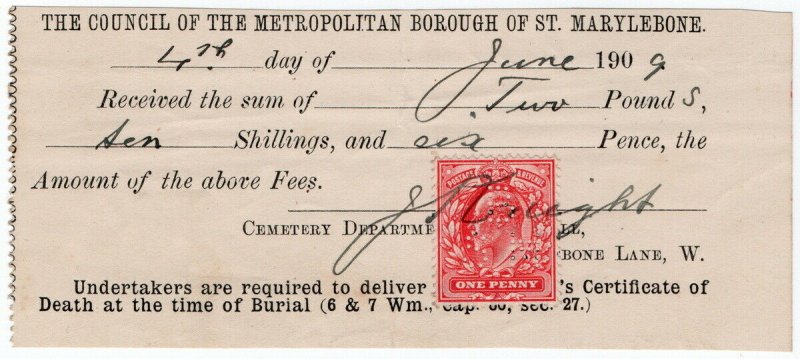 THE COUNCIL OF THE METROPOLITAN BOROUGH OF ST. MARYLEBONE.
4th day of June 1909
Received the sum of Two Pounds,
ten Shillings, and six Pence, the
Amount of the above Fees.
J Knight
POSTAGE & REVENUE
CEMETERY DEPARTME LL,
BONE LANE, W.
ONE PENNY
Undertakers are required to deliver 's Certificate of
Death at the time of Burial (6 & 7 Wm., cap. 86, sec. 27.)